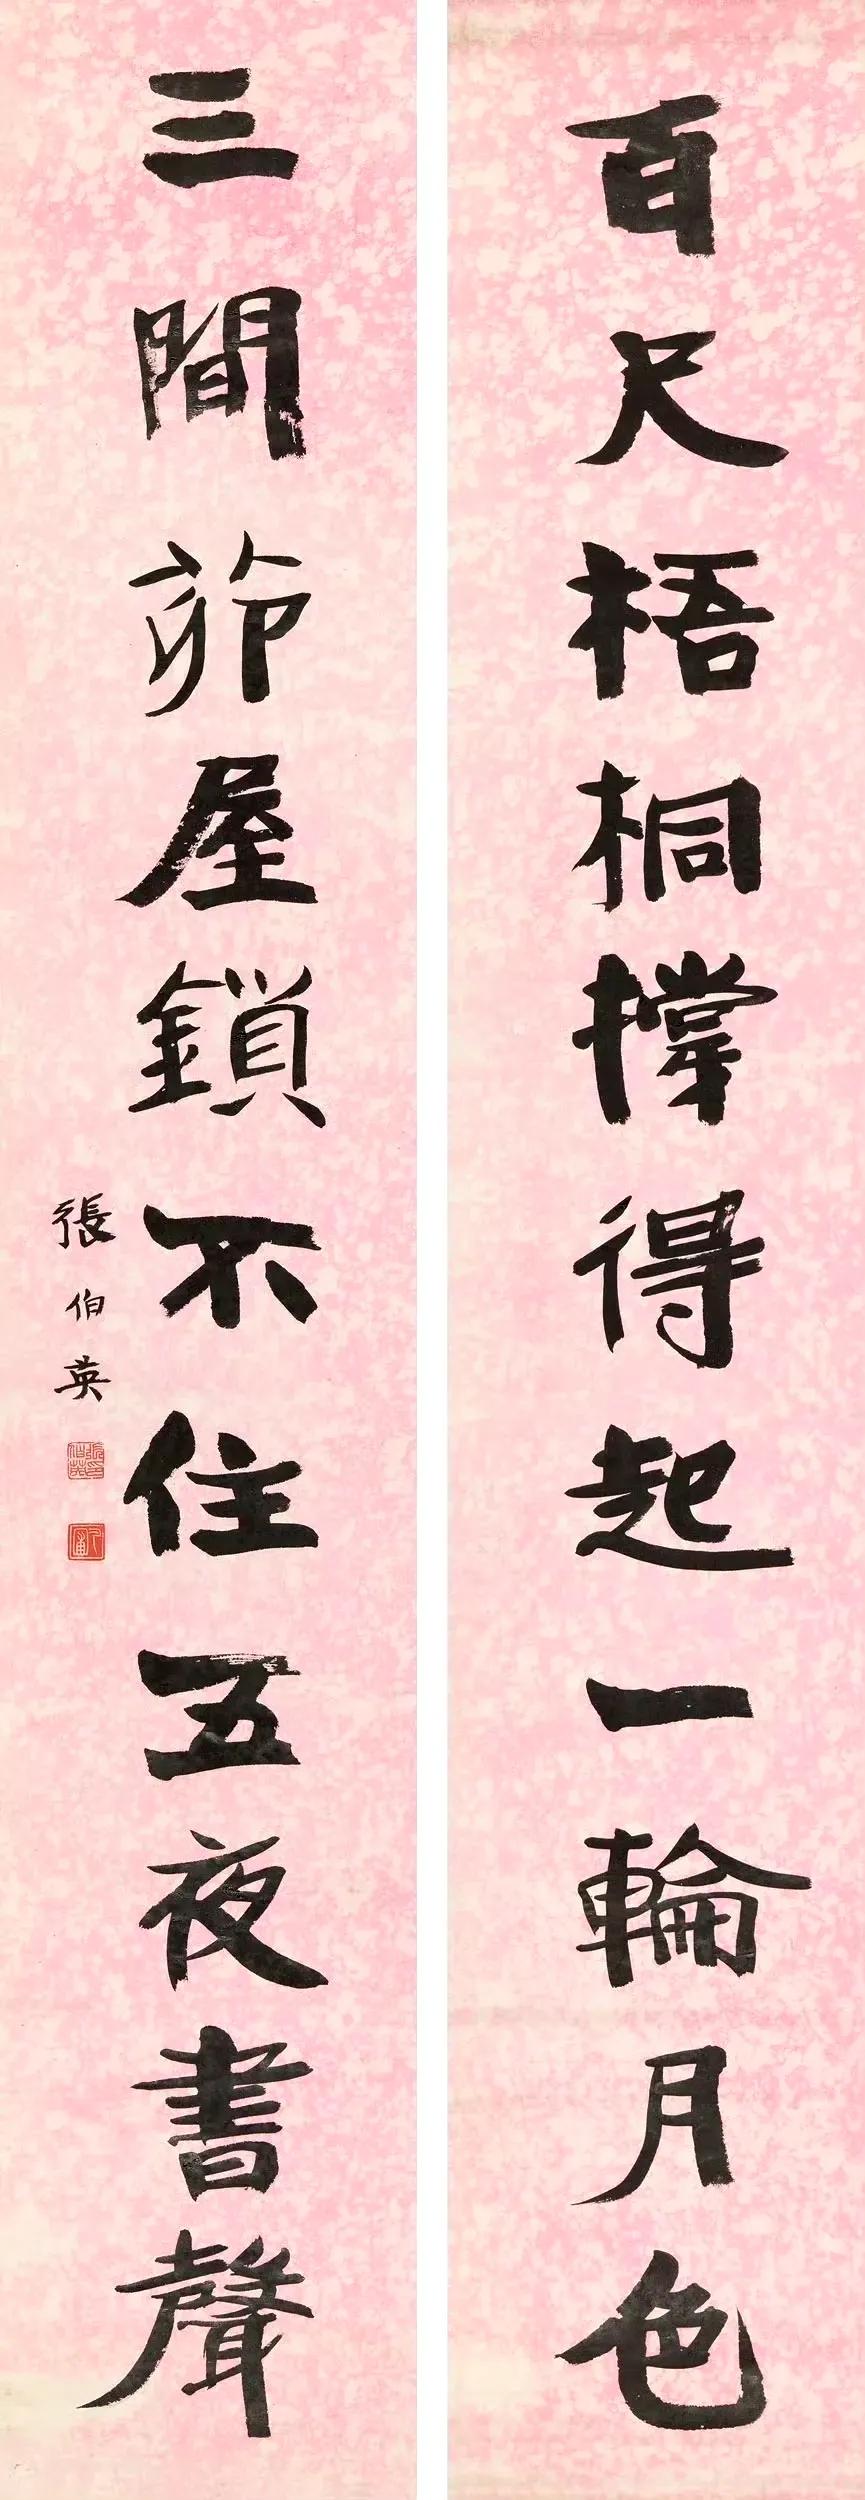 百尺梧桐撑得起一輪月色
三間茆屋鎖不住五夜書聲
張伯英
張伯英印
勺圃